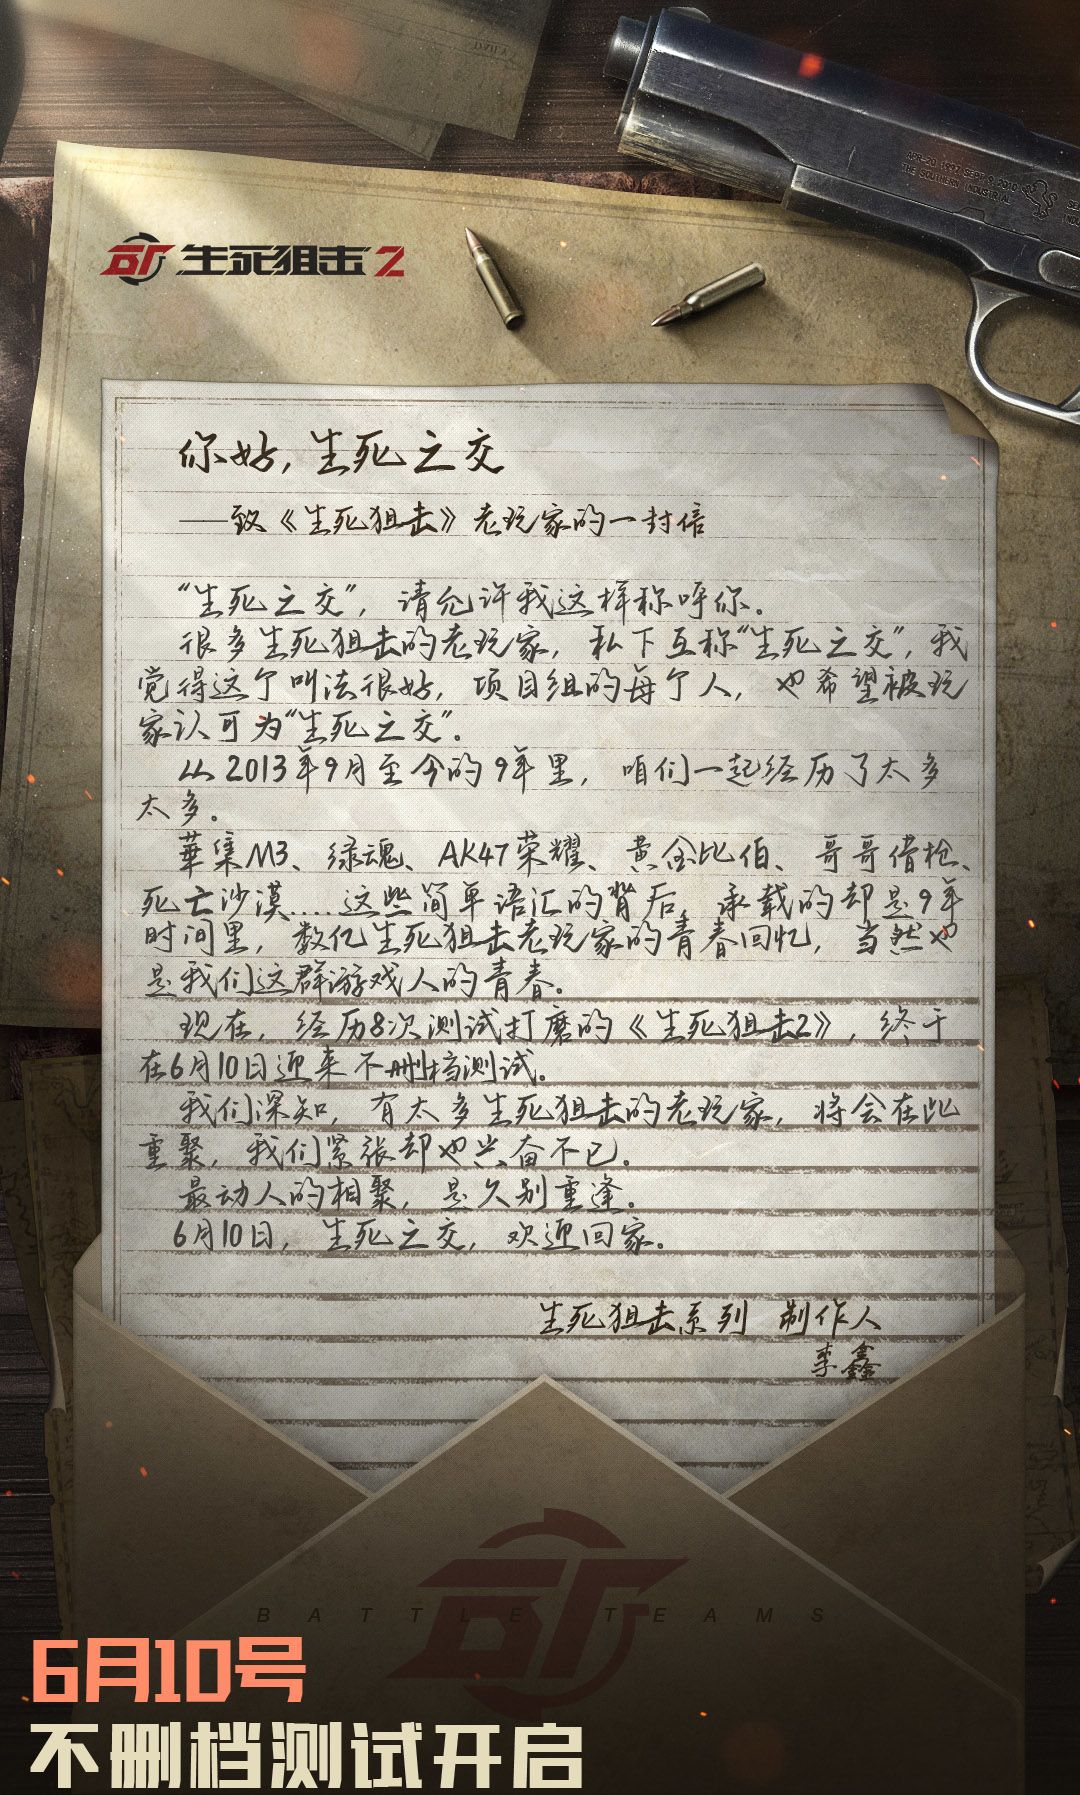 BT 生死狙击2
APR-20 1897 SEPT 9.2010
THE SOUTHERN INDUSTRIAL
你好，生死之交
——致《生死狙击》老玩家的一封信
“生死之交”，请允许我这样称呼你。
很多生死狙击的老玩家，私下互称“生死之交”，我
觉得这个叫法很好，项目组的每个人，也希望被玩
家认可为“生死之交”。
从2013年9月至今的9年里，咱们一起经历了太多
太多。
華集M3、绿魂、AK47荣耀、黄金比伯、哥哥借枪、
死亡沙漠....这些简单语汇的背后，承载的却是9年
时间里，数亿生死狙击老玩家的青春回忆，当然也
是我们这群游戏人的青春。
现在，经历8次测试打磨的《生死狙击2》，终于
在6月10日迎来不删档测试。
我们深知，有太多生死狙击的老玩家，将会在此
重聚，我们紧张却也兴奋不已。
最动人的相聚，是久别重逢。
6月10日，生死之交，欢迎回家。
生死狙击系列 制作人
李鑫
BATTLE TEAMS
6月10号
不删档测试开启